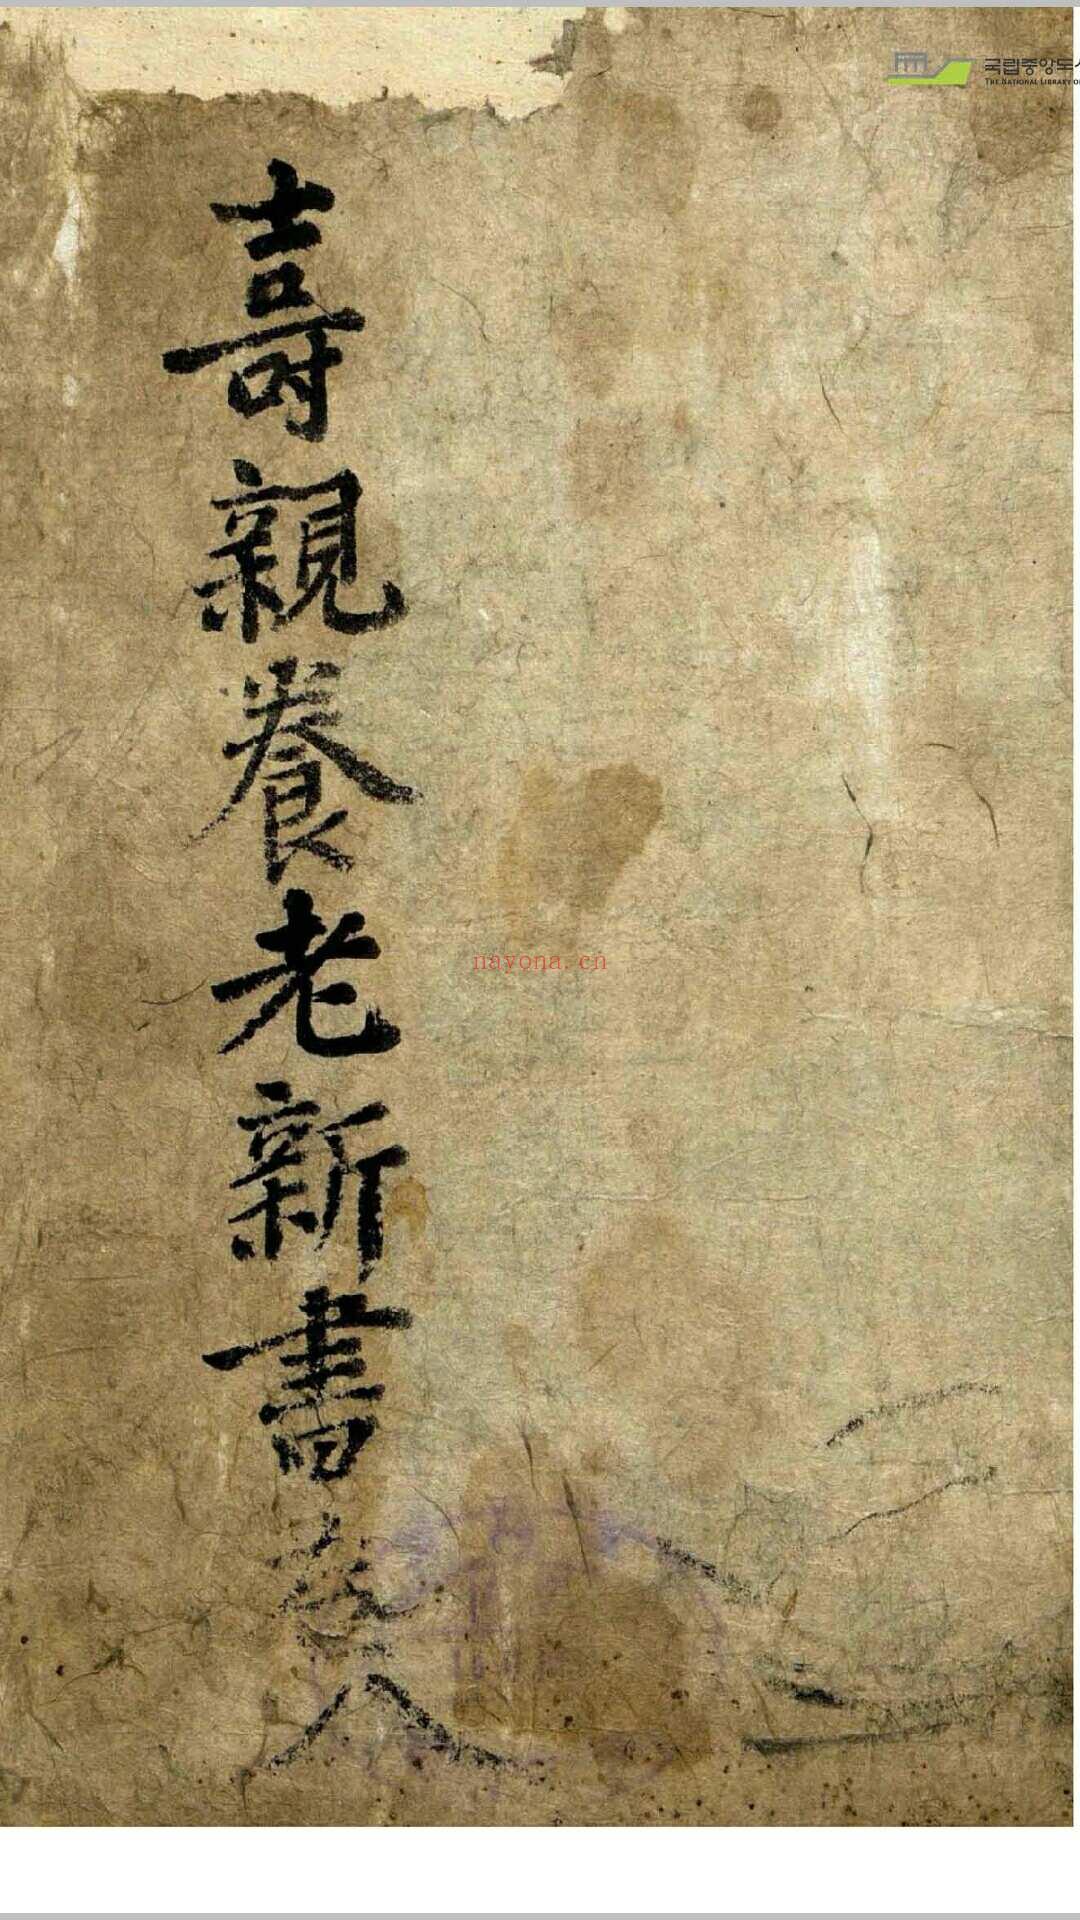 국립중앙도서
THE NATIONAL LIBRARY OF
壽親養老新書
nayona.cn